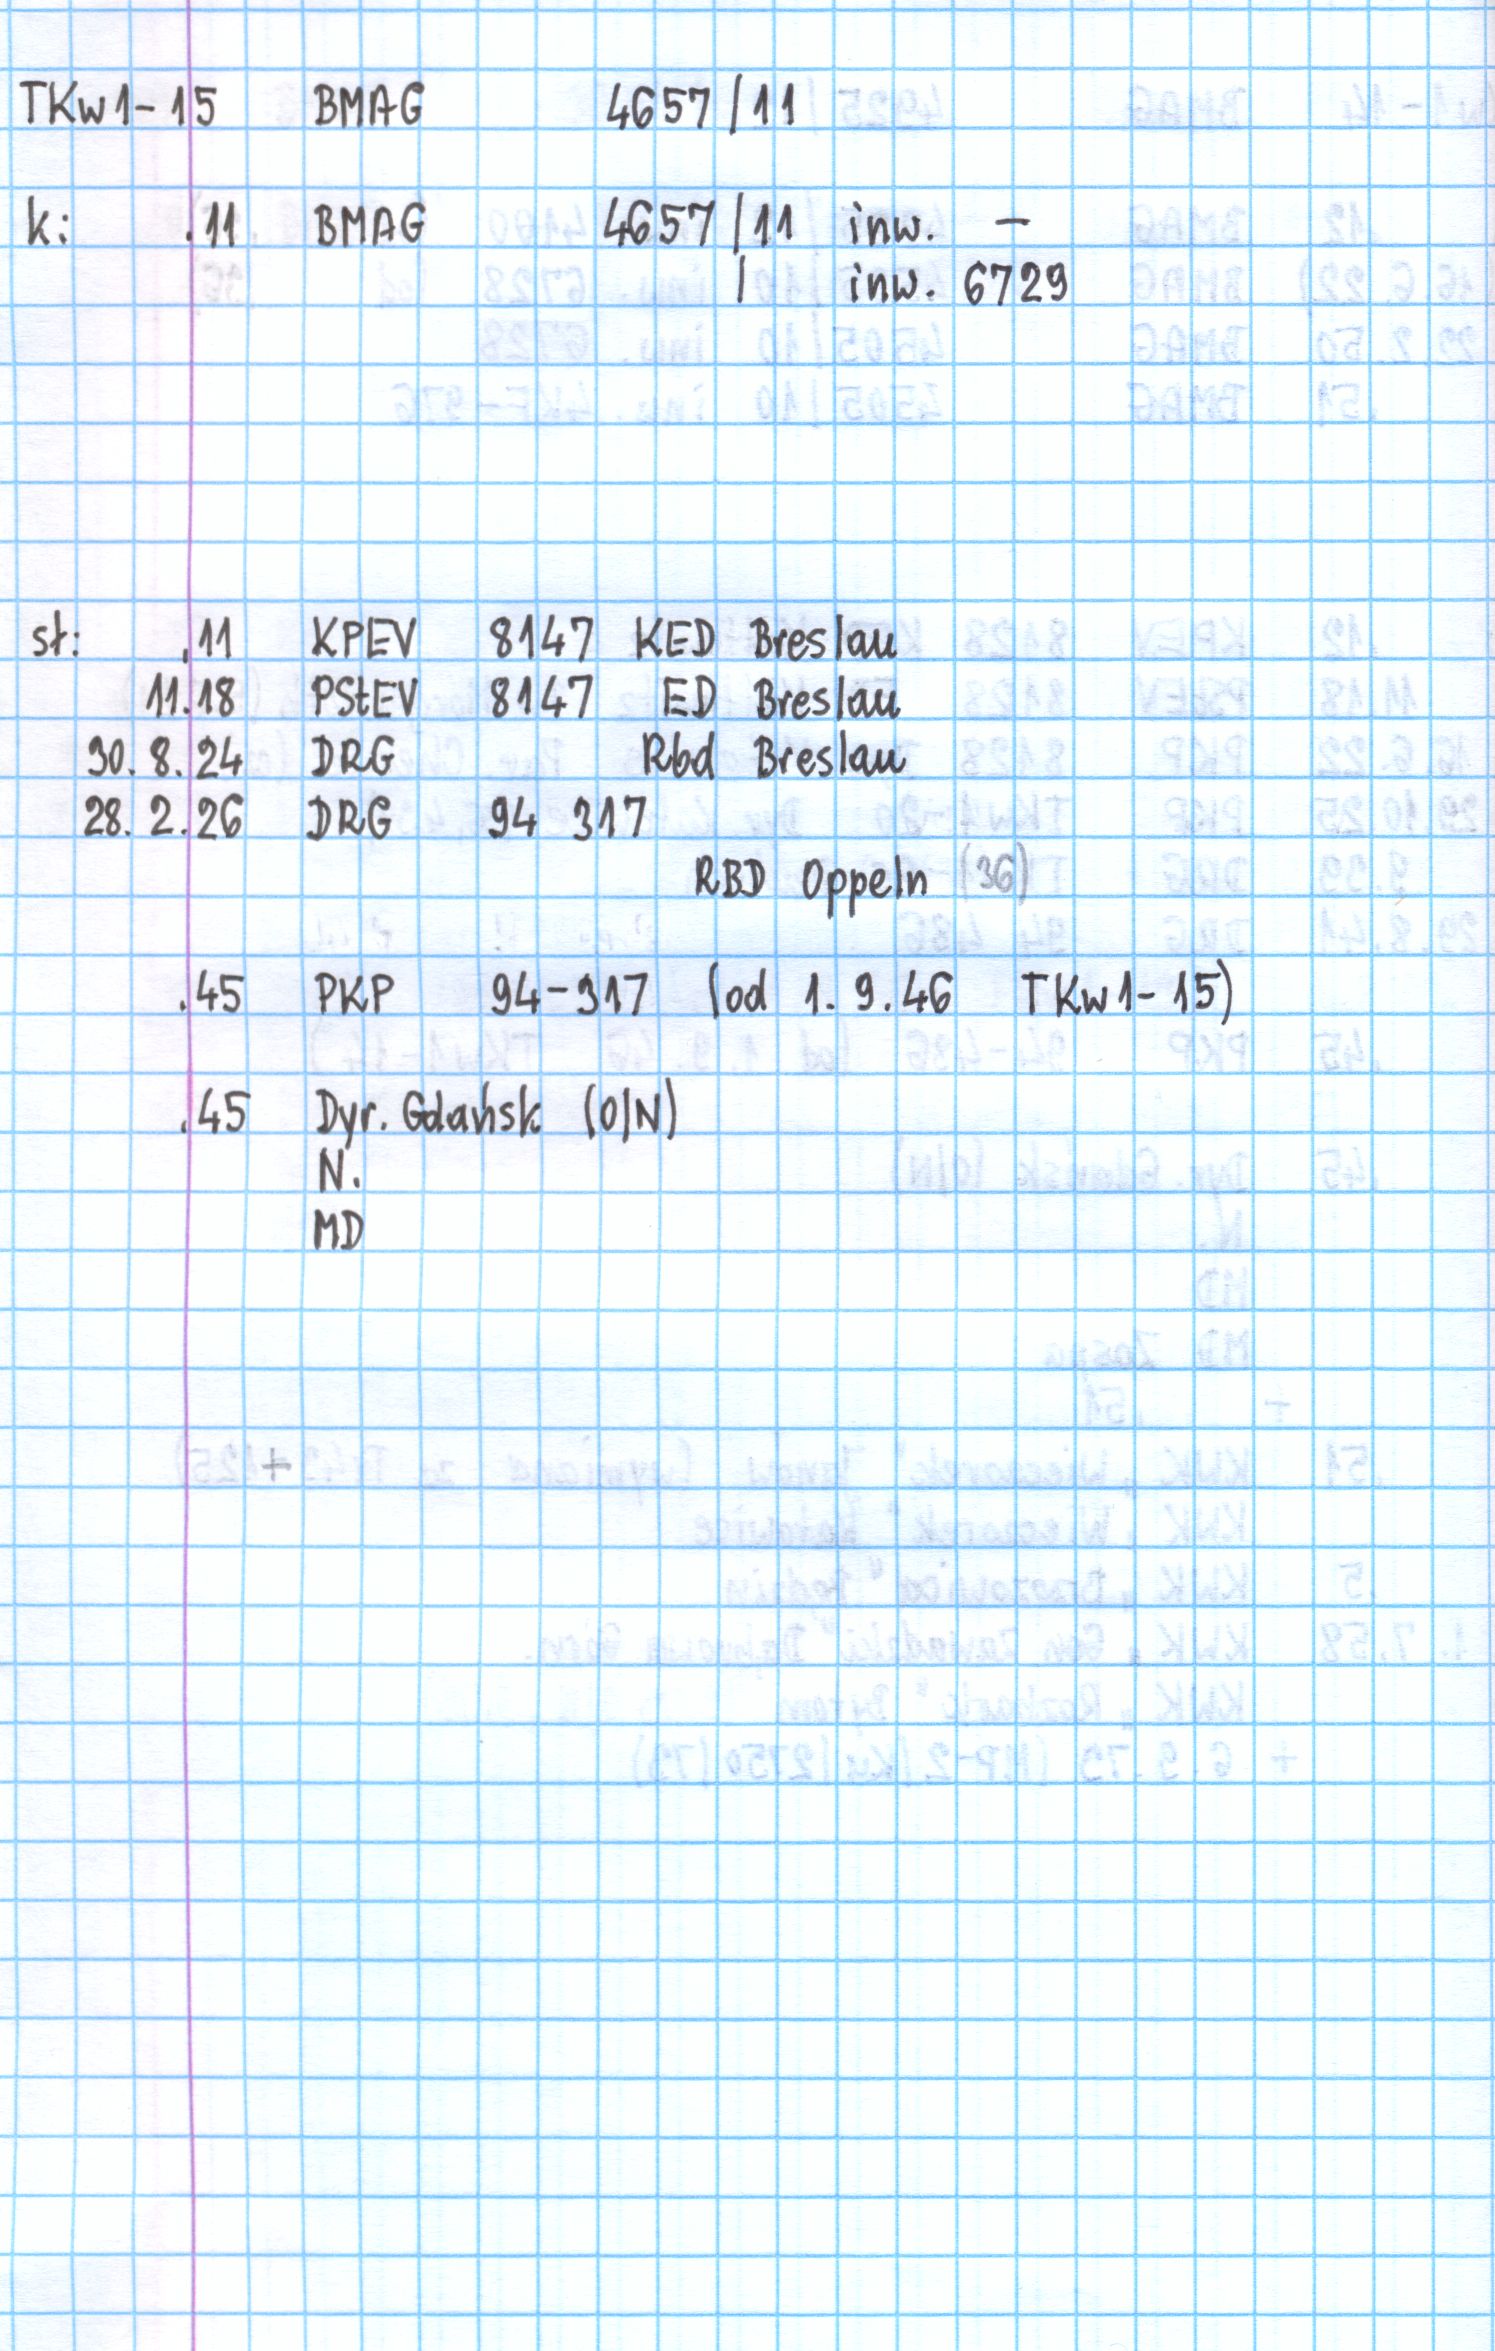 TKw1-15 BMAG 4657/11
k: .11 BMAG 4657/11 inw. –
/ inw. 6729
st: .11 KPEV 8147 KED Breslau
11.18 PStEV 8147 ED Breslau
30.8.24 DRG Rbd Breslau
28.2.26 DRG 94 317
RBD Oppeln (36)
.45 PKP 94-317 (od 1.9.46 TKw1-15)
.45 Dyr. Gdańsk (O/N)
N.
MD